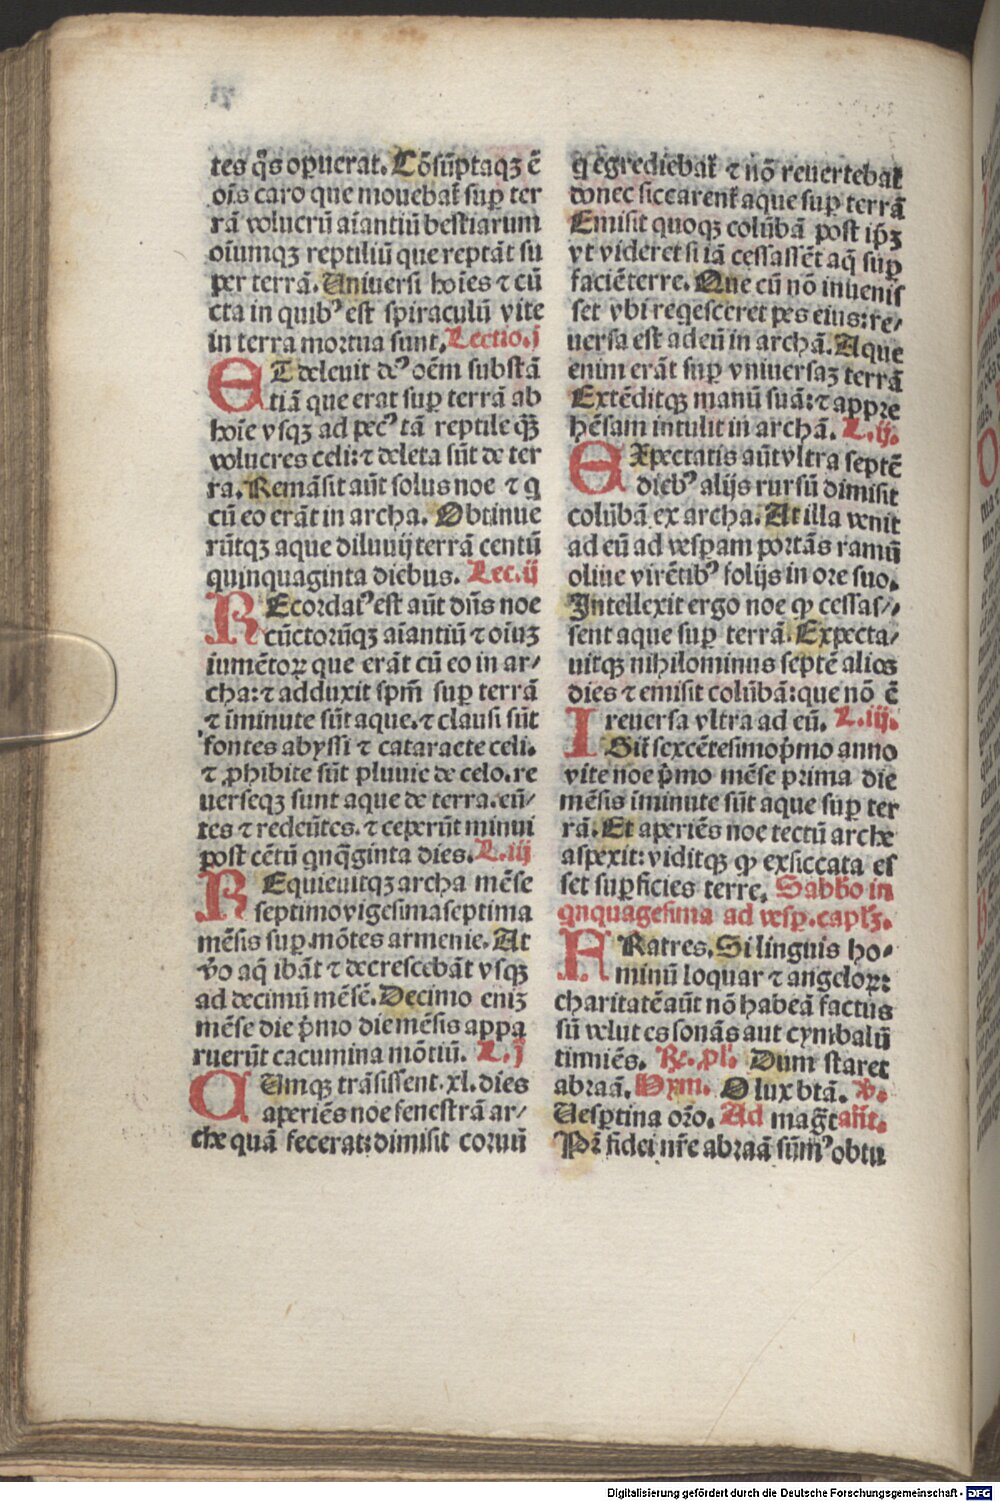 tes q̄s operuerat. Cōsūptaqꝫ ē
oīs caro que mouebat᷑ suꝑ ter
rā volucrū aīantiū bestiarum
oīumqꝫ reptiliū que reptāt su
per terrā. Uniuersi hoīes ⁊ cū
cta in quibꝰ est spiraculū vite
in terra mortua sunt. Lectio.j
ET deleuit deꝰ oēm substā
tiā que erat suꝑ terrā ab
hoīe vsqꝫ ad pecꝰ tā reptile qꝫ̄
volucres celi: ⁊ deleta sūt de ter
ra. Remāsit aūt solus noe ⁊ q
cū eo erāt in archa. Obtinue
rūtqꝫ aque diluuij terrā centū
quinquaginta diebus. Lec.ij
REcordatꝰ est aūt dn̄s noe
cūctorūqꝫ aīantiū ⁊ oīuꝫ
iumētoꝝ que erāt cū eo in ar/
cha: ⁊ adduxit spm̄ suꝑ terrā
⁊ īminute sūt aque. ⁊ clausi sūt
fontes abyssi ⁊ cataracte celi.
⁊ ꝓhibite sūt pluuie de celo. re
uerseqꝫ sunt aque de terra. eū/
tes ⁊ redeūtes. ⁊ ceperūt minui
post cētū qnq̄ginta dies. L.iij
REquieuitqꝫ archa mēse
septimo vigesimaseptima
mēsis suꝑ mōtes armenie. At
v̄o aq̄ ibāt ⁊ decrescebāt vsqꝫ
ad decimū mēsē. Decimo eniꝫ
mēse die p̄mo die mēsis appa
ruerūt cacumina mōtiū. L.j
CUmqꝫ trāsissent .xl. dies
aperiēs noe fenestrā ar/
che quā fecerat: dimisit coruū
q egrediebat᷑ ⁊ nō reuertebat᷑
donec siccarent᷑ aque suꝑ terrā
Emisit quoqꝫ colūbā post ip̄ꝫ
vt videret si iā cessassēt aq̄ suꝑ
faciē terre. Que cū nō inuenis
set vbi reqesceret pes eius: re/
uersa est ad eū in archā. Aque
enim erāt suꝑ vniuersaꝫ terrā
Extēditqꝫ manū suā: ⁊ appre
hēsam intulit in archā. L.ij.
EXpectatis aūt vltra septē
diebꝰ alijs rursū dimisit
colūbā ex archa. At illa venit
ad eū ad vesꝑam portās ramū
oliue virētibꝰ folijs in ore suo.
Intellexit ergo noe ꝙ cessas//
sent aque suꝑ terrā. Expecta/
uitqꝫ nihilominus septē alios
dies ⁊ emisit colūbā: que nō ē
reuersa vltra ad eū. L.iij.
IGit᷑ sexcētesimo p̄mo anno
vite noe p̄mo mēse prima die
mēsis īminute sūt aque suꝑ ter
rā. Et aperiēs noe tectū arche
aspexit: viditqꝫ ꝙ exsiccata es
set suꝑficies terre. Sabb̄o in
qnquagesima ad vesꝑ. capl̄ꝫ.
FRatres. Si linguis ho-
minū loquar ⁊ angeloꝝ:
charitatē aūt nō habeā factus
sū velut es sonās aut cymbalū
tinniēs. Re. pl̄. Dum staret
abraā. Hym. O lux bt̄a. V.
Uesꝑtina or̄o. Ad mag̃t añt.
Pr̄ fidei nr̄e abraā sūmꝰ obtu
Digitalisierung gefördert durch die Deutsche Forschungsgemeinschaft - DFG